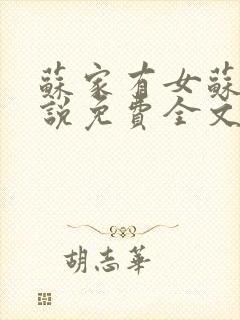 蘇家有女蘇
說免費全文
胡志華